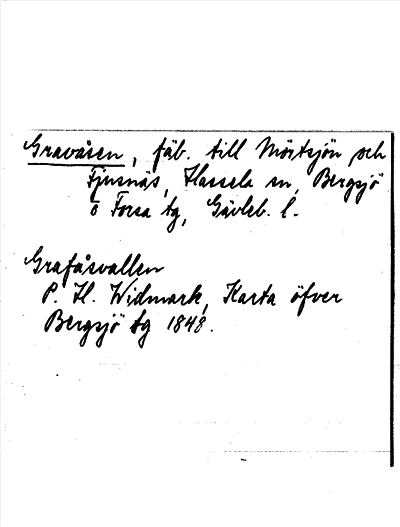 Gravåsen, fäb. till Mörtsjön och
Fjusnäs, Hassela sn, Bergsjö
o Forsa tg, Gävleb. l.
Grafåsvallen
P. H. Widmark, Karta öfver
Bergsjö tg 1848.